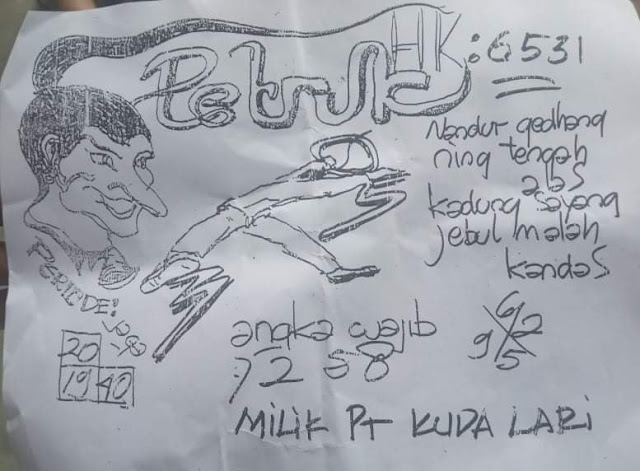 Petruk HK:6531
Nandur gedhang
ning tengah
alas
kadung sayang
jebul malah
kandas
PERIODE!
20
19 40
angka wajib
72 58
6 2
9 5
MILIK PT KUDA LARI